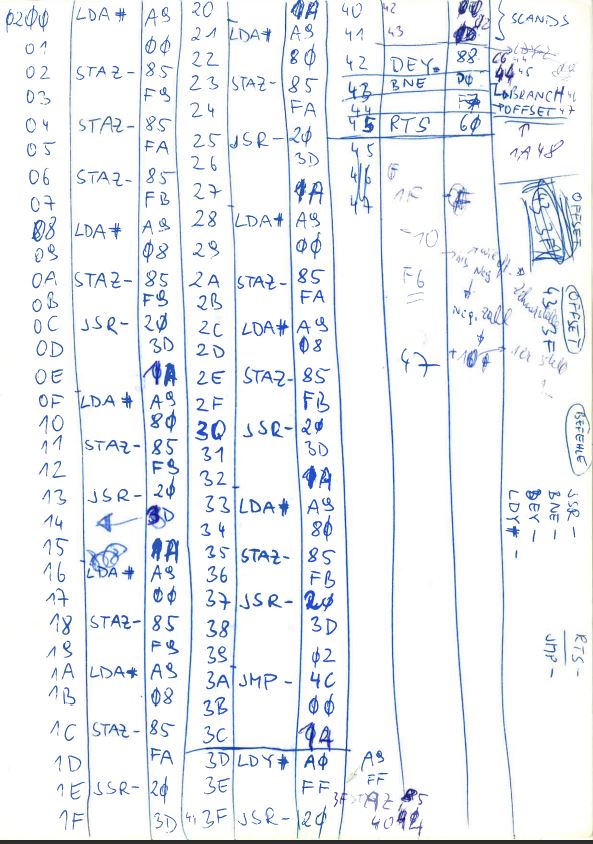 0200 LDA# A9
01 00
02 STAZ- 85
03 F9
04 STAZ- 85
05 FA
06 STAZ- 85
07 FB
08 LDA# A9
09 08
0A STAZ- 85
0B F9
0C JSR- 20
0D 3D
0E 1A
0F LDA# A9
10 80
11 STAZ- 85
12 F9
13 JSR- 20
14 3D
15 1A
16 LDA# A9
17 00
18 STAZ- 85
19 F9
1A LDA# A9
1B 08
1C STAZ- 85
1D FA
1E JSR- 20
1F 3D
20 1A
21 LDA# A9
22 80
23 STAZ- 85
24 FA
25 JSR- 20
26 3D
27 1A
28 LDA# A9
29 00
2A STAZ- 85
2B FA
2C LDA# A9
2D 08
2E STAZ- 85
2F FB
30 JSR- 20
31 3D
32 1A
33 LDA# A9
34 80
35 STAZ- 85
36 FB
37 JSR- 20
38 3D
39 02
3A JMP- 4C
3B 00
3C 1A
3D LDY# A0
3E FF
3F JSR- 20
A9
FF
40 42
41 43 1D
SCANDS
42 DEY- 88
43 BNE D0
44 F7
BRANCH
OFFSET 47
45 RTS 60
1A48
45
46
47
1F
-10
F6
47
neg. zahl
OFFSET
OFFSET
43 3F
BEFEHLE
JSR-
BNE-
DEY-
LDY#-
RTS-
JMP-